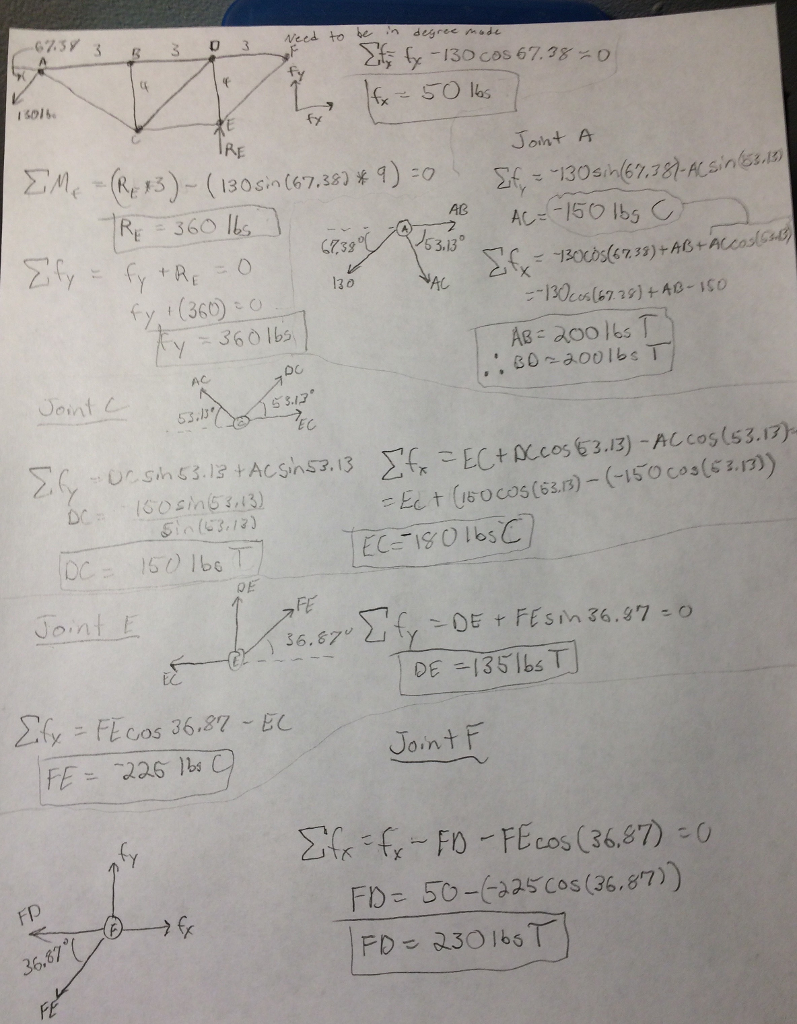 Need to be in degree mode
67.38 3 3 3
A B D F
4 4
130 lbs
C E
R_E
fy
fx
Σfx = fx -130 cos 67.38 = 0
fx = 50 lbs
ΣM_F = (R_E*3) - (130 sin(67.38) * 9) = 0
R_E = 360 lbs
Σfy = fy + R_E = 0
fy + (360) = 0
fy = 360 lbs
A
AB
67.38°
53.13°
130
AC
Joint A
Σfy = -130 sin(67.38) - AC sin(53.13)
AC = -150 lbs C
Σfx = -130cos(67.38) + AB + AC cos(53.13)
= -130 cos(67.38) + AB - 150
AB = 200 lbs T
∴ BD = 200 lbs T
Joint C
AC DC
53.13° 53.13°
C
EC
Σfy = DC sin 53.13 + AC sin 53.13
DC = 150 sin(53.13)
sin(53.13)
DC = 150 lbs T
Σfx = EC + DC cos(53.13) - AC cos(53.13) =
= EC + (150 cos(53.13) - (-150 cos(53.13))
EC = -180 lbs C
Joint E
DE
FE
36.87°
E
EC
Σfy = DE + FE sin 36.87 = 0
DE = 135 lbs T
Σfx = FE cos 36.87 - EC
FE = -225 lbs C
Joint F
fy
FD
F
fx
36.87°
FE
Σfx = fx - FD - FE cos(36.87) = 0
FD = 50 - (-225 cos(36.87))
FD = 230 lbs T